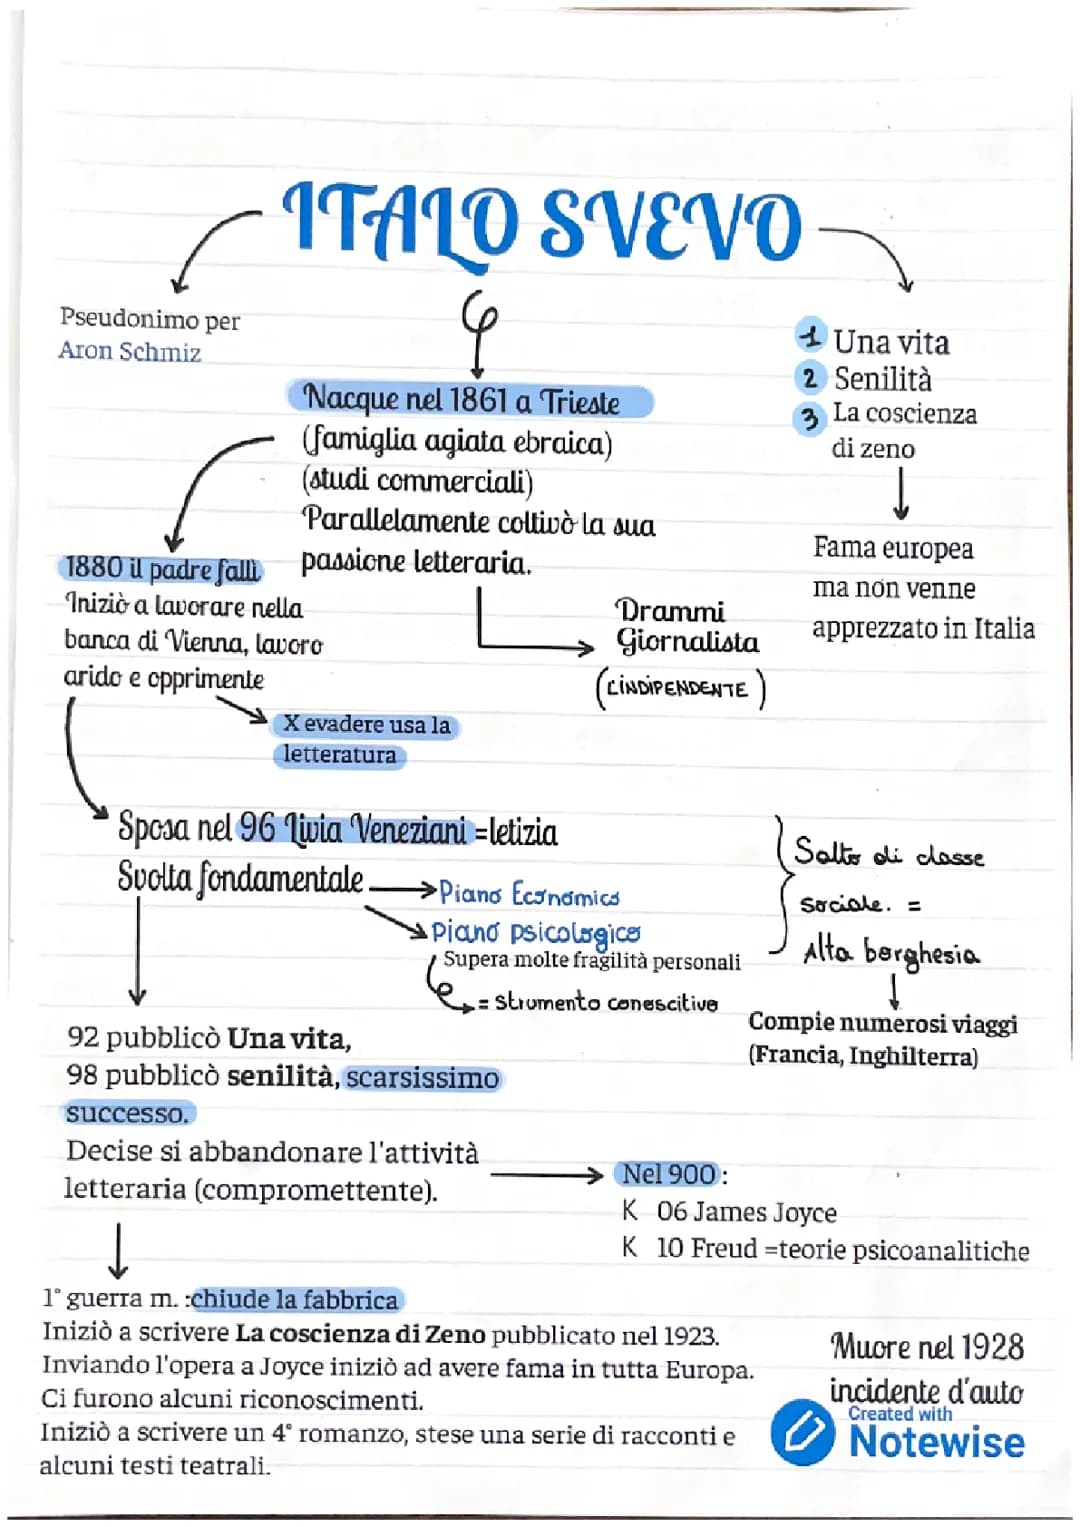 ITALO SVEVO
Pseudonimo per
Aron Schmiz
Nacque nel 1861 a Trieste
(famiglia agiata ebraica)
(studi commerciali)
Parallelamente coltivò la sua
passione letteraria.
1 Una vita
2 Senilità
3 La coscienza
di zeno
Fama europea
ma non venne
apprezzato in Italia
1880 il padre fallì
Iniziò a lavorare nella
banca di Vienna, lavoro
arido e opprimente
Drammi
Giornalista
(L'INDIPENDENTE)
X evadere usa la
letteratura
Sposa nel 96 Livia Veneziani =letizia
Svolta fondamentale
Piano Economico
Piano psicologico
Supera molte fragilità personali
= strumento conoscitivo
Salto di classe
sociale. =
Alta borghesia
Compie numerosi viaggi
(Francia, Inghilterra)
92 pubblicò Una vita,
98 pubblicò senilità, scarsissimo
successo.
Decise si abbandonare l'attività
letteraria (compromettente).
Nel 900:
K 06 James Joyce
K 10 Freud =teorie psicoanalitiche
1° guerra m. :chiude la fabbrica
Iniziò a scrivere La coscienza di Zeno pubblicato nel 1923.
Inviando l'opera a Joyce iniziò ad avere fama in tutta Europa.
Ci furono alcuni riconoscimenti.
Iniziò a scrivere un 4° romanzo, stese una serie di racconti e
alcuni testi teatrali.
Muore nel 1928
incidente d'auto
Created with
Notewise